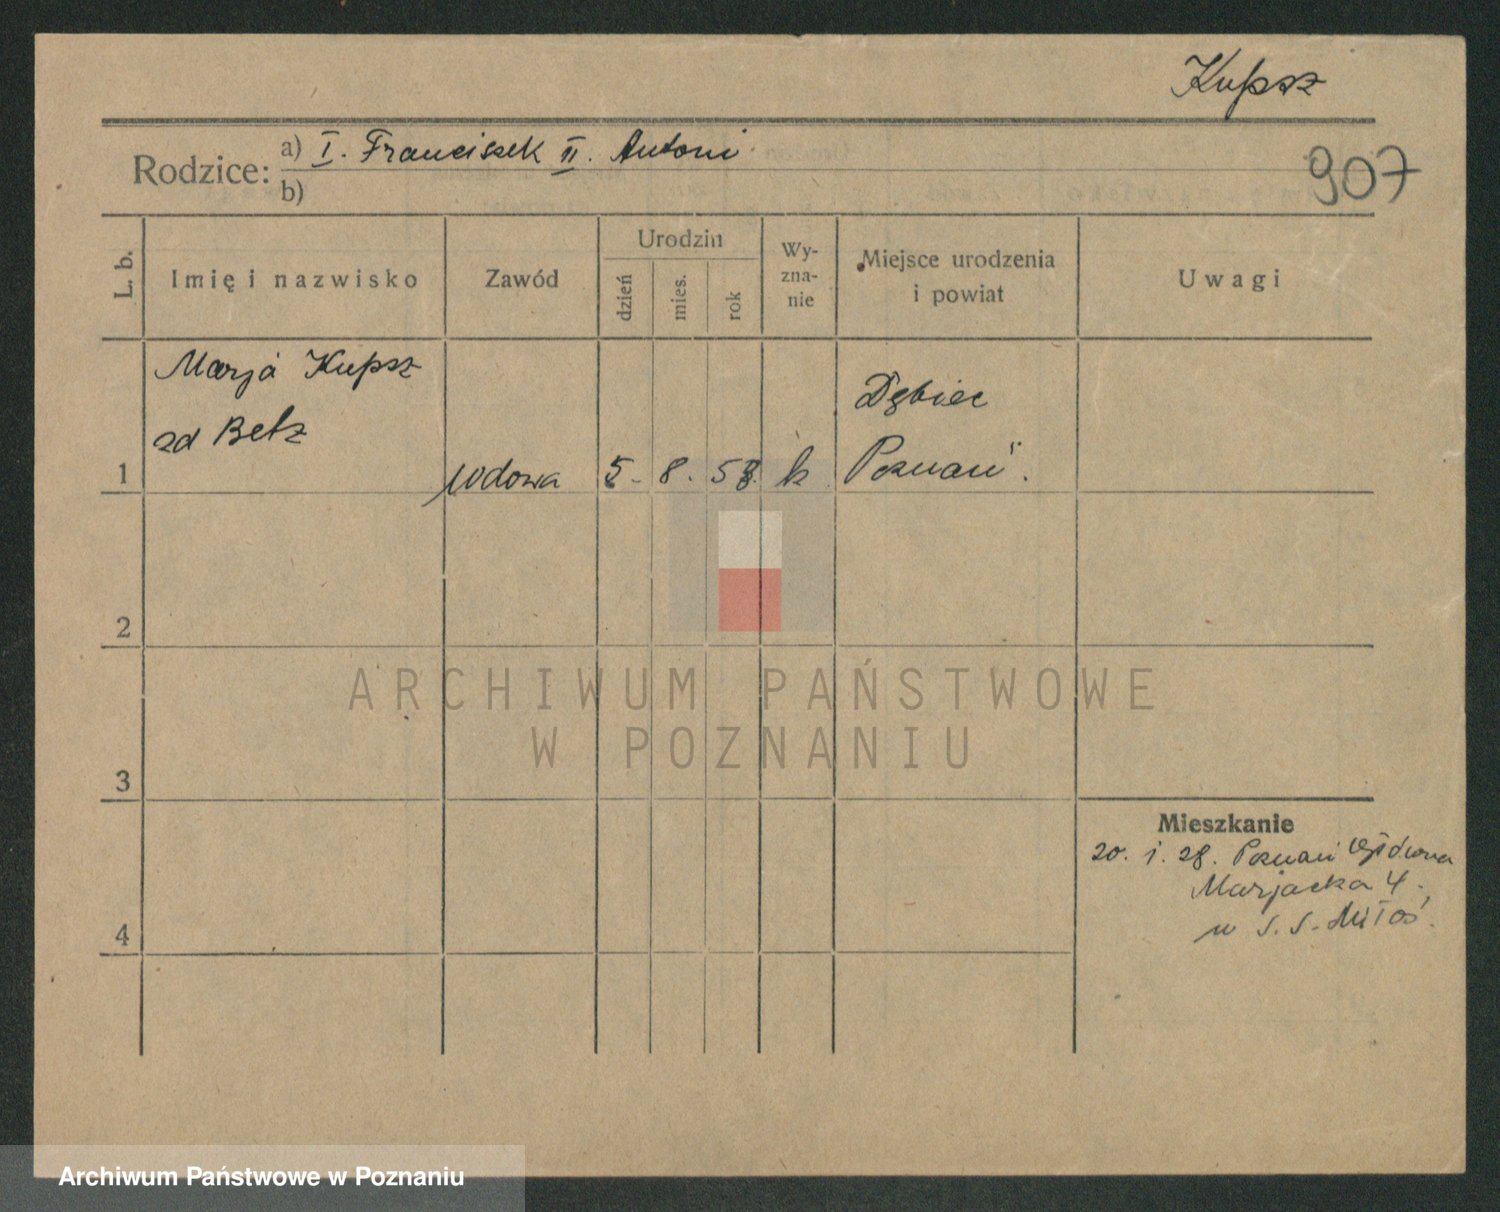 Kupsz
907
Rodzice: a) I. Franciszek II. Antoni
b)
L. b.
Imię i nazwisko
Zawód
Urodzin
dzień
mies.
rok
Wy-
zna-
nie
Miejsce urodzenia
i powiat
Uwagi
Marja Kupsz
zd Betz
1
wdowa
5. 8. 58. k
Dębiec
Poznań.
2
ARCHIWUM PAŃSTWOWE
W POZNANIU
3
Mieszkanie
20. 1. 28. Poznań
Marjacka 4.
u S. S. Miłoś.
4
Archiwum Państwowe w Poznaniu